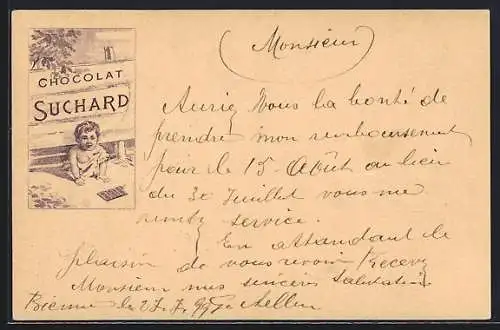 CHOCOLAT
SUCHARD
Monsieur
Auriez Vous la bonté de
prendre mon remboursement
pour le 15 Août au lieu
du 30 Juillet vous me
service.
En attendant le
plaisir de vous revoir Recevez
Monsieur mes sincères Salutations
Bienne le 27.7.97